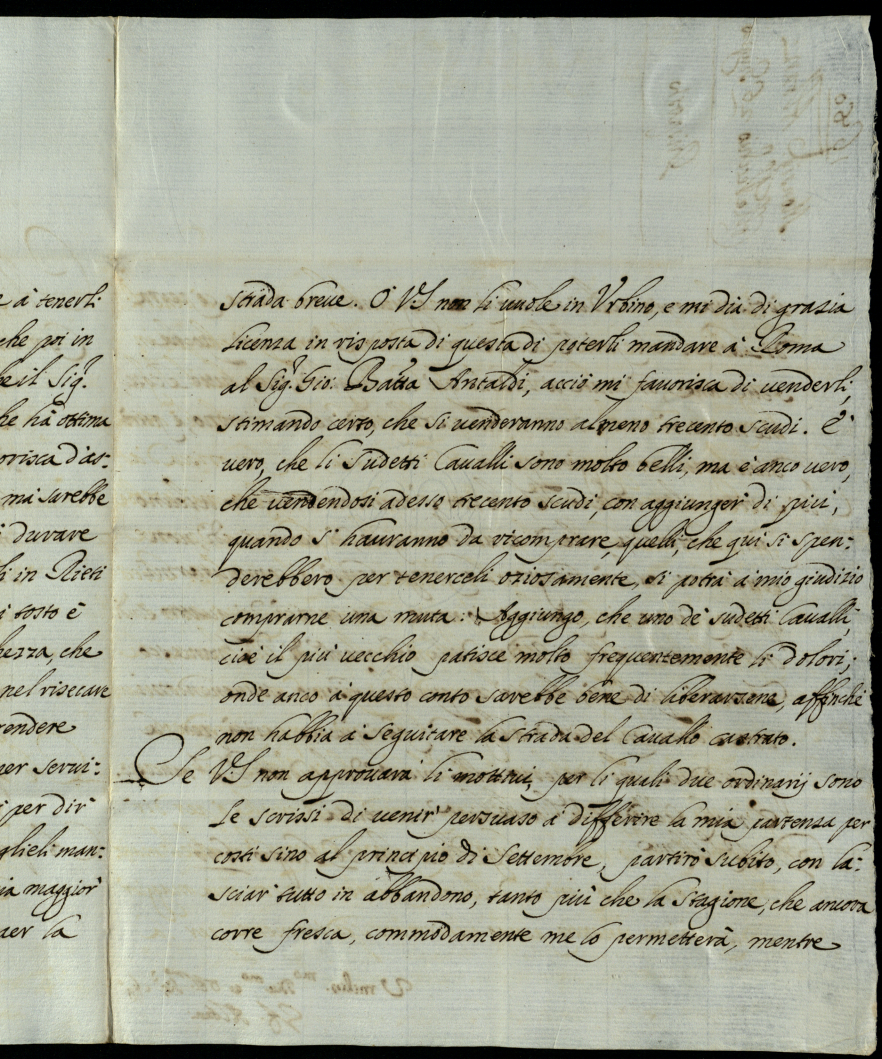 e à tenerli
che poi in
be il Sig.r
he hà ottima
orisca d'as:
mi sarebbe
durare
li in Rieti
i tosto è
hezza, che
nel risecare
rendere
per servi:
i per dir
glieli man:
ia maggior
per la
strada breve. O V.S. non li vuole in Urbino, e mi dia di grazia
licenza in risposta di questa di poterli mandare à Roma
al Sig.r Gio: Batta Antaldi, acciò mi favorisca di venderli,
stimando certo, che si venderanno almeno trecento scudi. È
vero, che li sudetti Cavalli sono molto belli, ma è anco vero,
che vendendosi adesso trecento scudi, con aggiunger di più,
quando si hauranno da ricomprare, quelli, che qui si spen:
derebbero per tenerceli oziosamente, si potrà a mio giudizio
comprarne una muta. Aggiungo, che uno de' sudetti Cavalli,
cioè il più vecchio patisce molto frequentemente li dolori;
onde anco à questo conto sarebbe bene di liberarsene, affinchè
non habbia à seguitare la strada del Cavallo castrato.
Se V.S. non approvarà li mottivi, per li quali due ordinarij sono
le scrissi di venir persuaso à differire la mia partenza per
costì sino al principio di Settembre, partirò subito, con la:
sciar tutto in abbandono, tanto più che la Stagione, che ancora
corre fresca, commodamente me lo permetterà, mentre